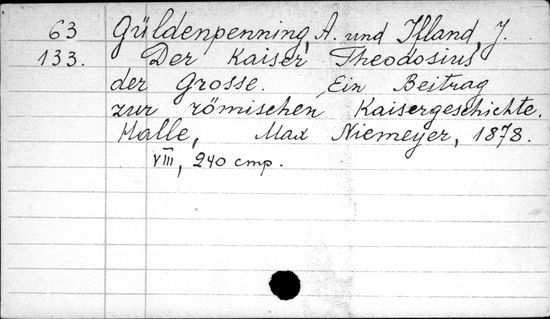 63 Güldenpenning, A. und Ifland, J.
133. Der Kaiser Theodosius
der Grosse. Ein Beitrag
zur römischen Kaisergeschichte.
Halle, Max Niemeyer, 1878.
VIII, 240 стр.